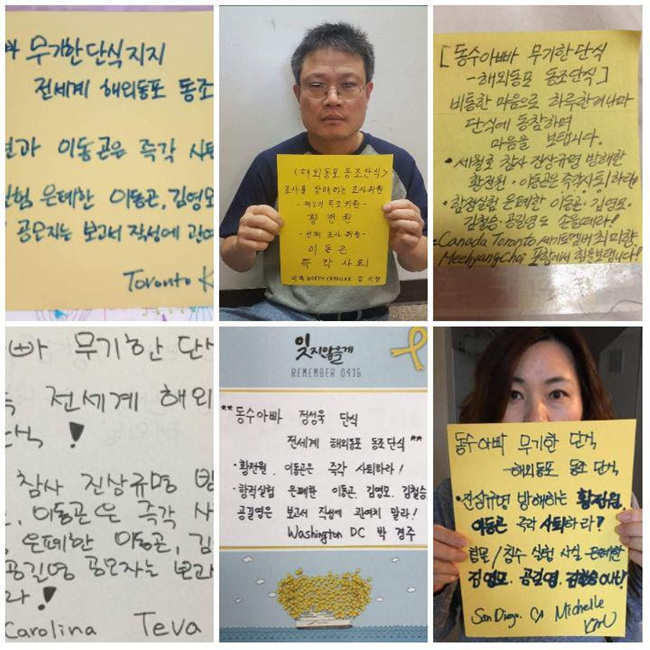 빠 무기한 단식지지
전세계 해외동포 동조
이동곤은 즉각 사퇴
은폐한 이동곤, 김영모
공모자는 보고서 작성에 관여
Toronto K
<해외동포 동조단식>
조사를 방해하는 조사위원
- 제1기 특조위원 -
황전원
- 선체 조사 위원 -
이동곤
즉각 사퇴
미국 NORTH CAROLINA
[동수아빠 무기한 단식
-해외동포 동조단식]
비통한 마음으로 하루한끼나마
단식에 동참하며
마음을 보탭니다.
• 세월호 참사 진상규명 방해한
황전원 · 이동곤은 즉각사퇴하라!
• 침수실험 은폐한 이동곤, 김영모,
김철승, 공길영도 손을떼라!
Canada Toronto 세기토멤버 최미향
Meehyang Choi 포항에서 힘을보탭니다!
빠 무기한 단식
전세계 해외
단식 !
참사 진상규명 방
, 이동곤은 즉각 사
은폐한 이동곤, 김
공길영 공모자는 보고
라!
Carolina Teva
잊지않을게
REMEMBER 0416
"동수아빠 정성욱 단식
전세계 해외동포 동조단식"
• 황전원, 이동곤은 즉각 사퇴하라!
은폐한 이동곤, 김영모, 김철승
공길영은 보고서 작성에 관여치 말라!
Washington DC 박 경주
동수아빠 무기한 단식
-해외동포 동조 단식
• 진상규명 방해하는 황전원,
이동곤 즉각 사퇴하라!
침수 실험 사실 은폐한
공길영, 김철승 OUT!
San Diego, CA Michelle